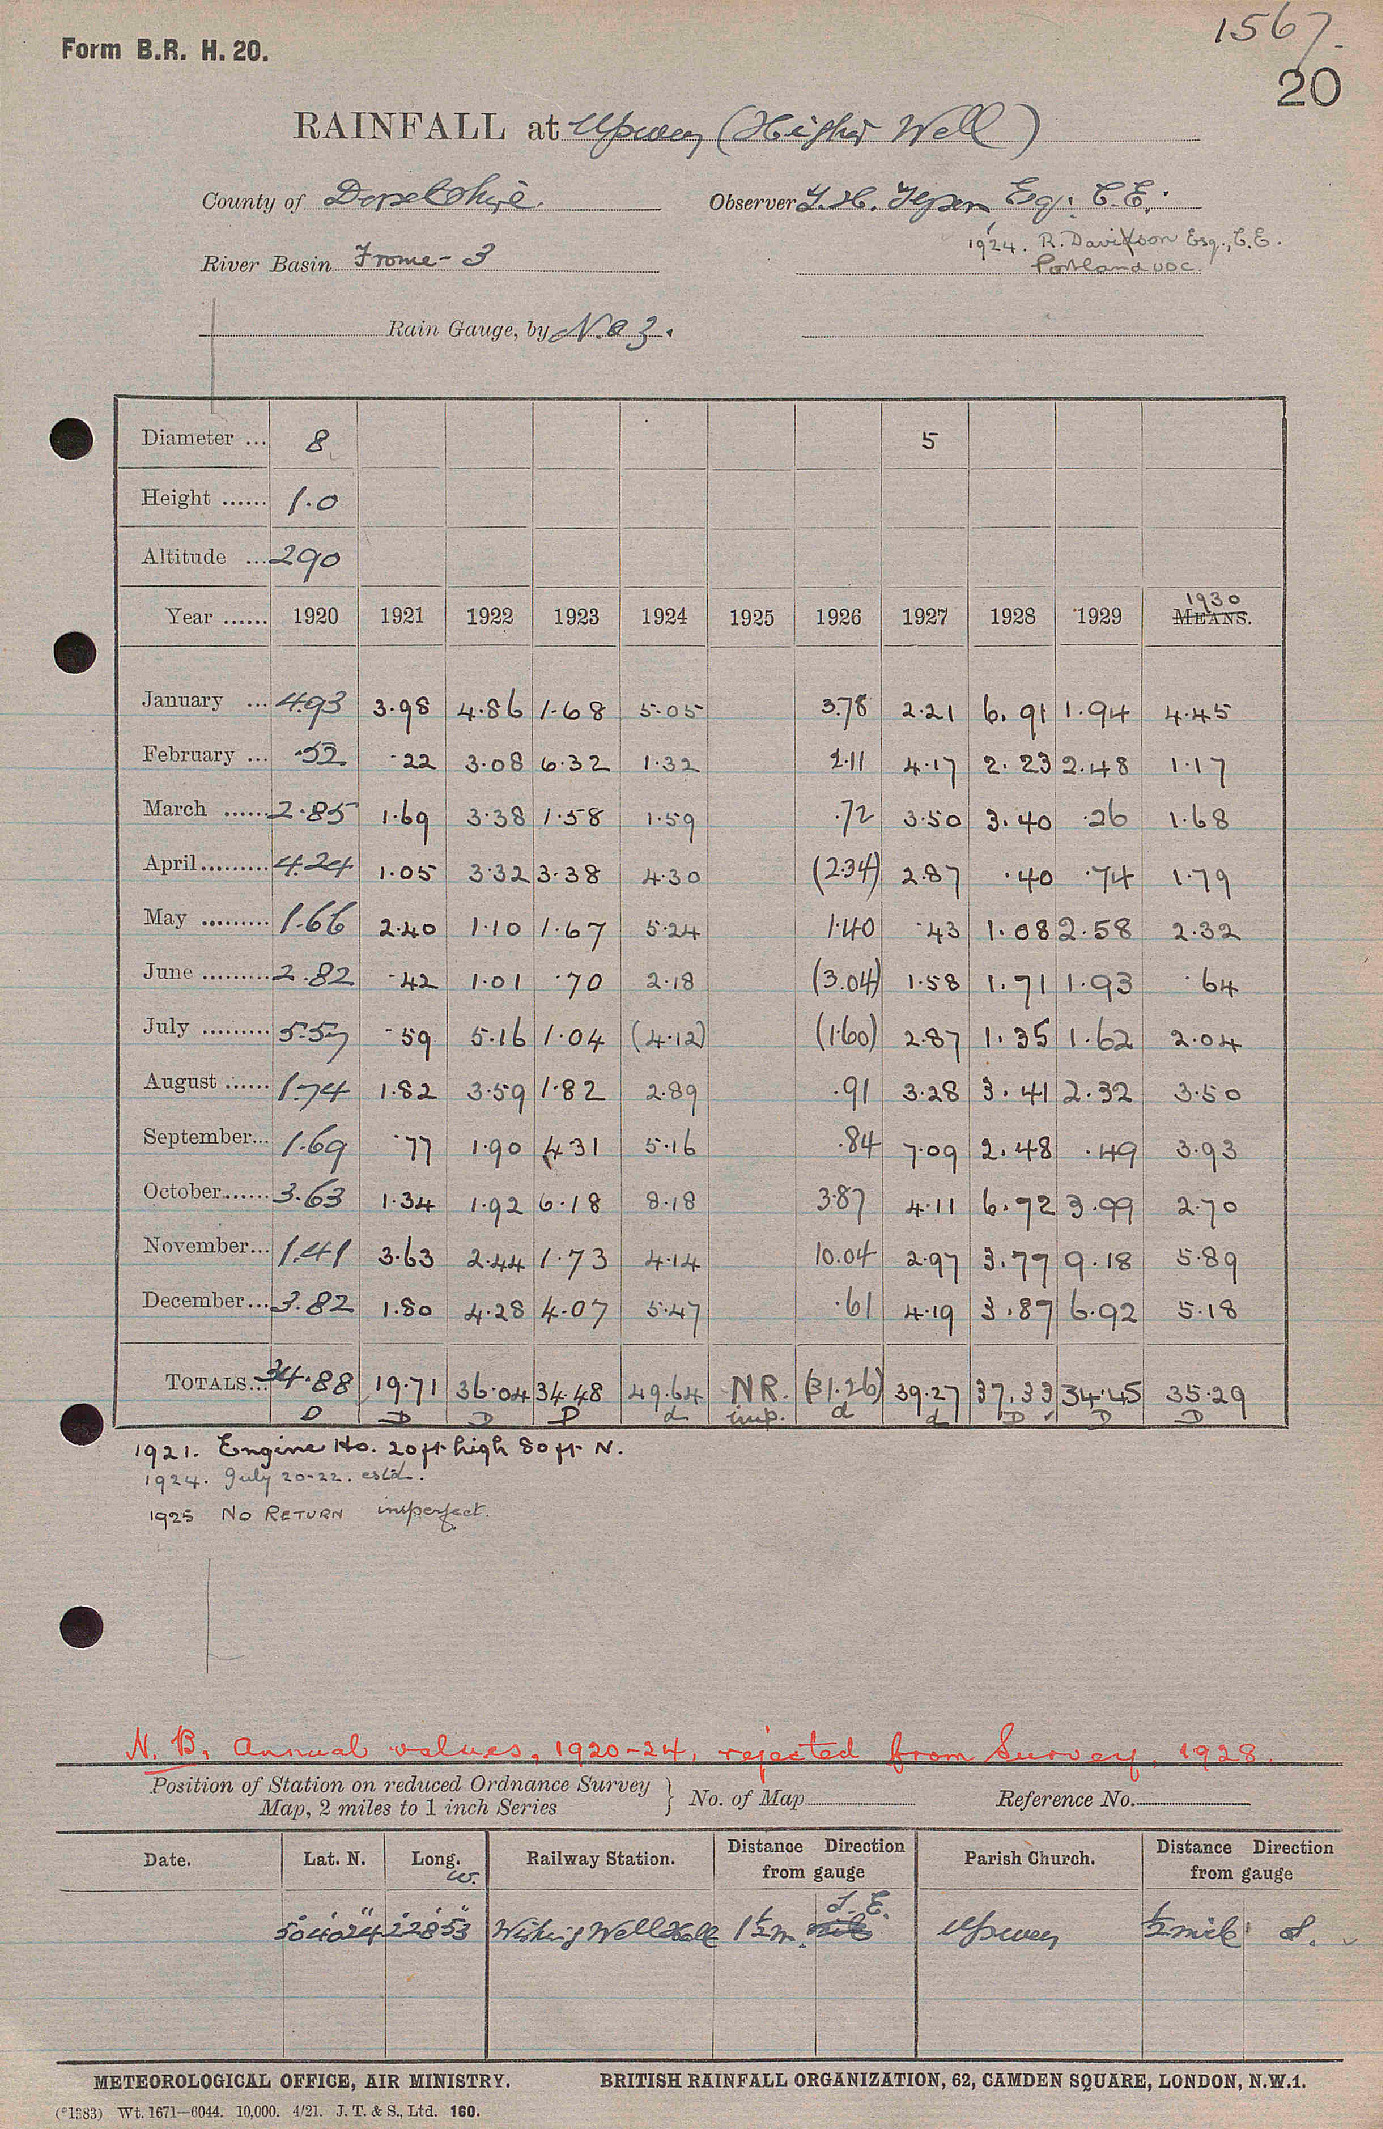 1567.
Form B.R. H. 20.
20
RAINFALL at Upwey (Higher Well)
County of Dorsetshire. Observer Esq: C.E.
1924. R. Davidson Esq., C.E.
River Basin Frome - 3 Portland UDC.
Rain Gauge, by No 3.
Diameter ... 8 5
Height ...... 1.0
Altitude ... 290
Year ...... 1920 1921 1922 1923 1924 1925 1926 1927 1928 1929 1930 MEANS.
January ... 4.93 3.98 4.86 1.68 5.05 3.78 2.21 6.91 1.94 4.45
February ... .52 .22 3.08 6.32 1.32 2.11 4.17 2.23 2.48 1.17
March ...... 2.85 1.69 3.38 1.58 1.59 .72 3.50 3.40 .26 1.68
April ......... 4.24 1.05 3.32 3.38 4.30 (2.34) 2.87 .40 .74 1.79
May ......... 1.66 2.40 1.10 1.67 5.24 1.40 .43 1.08 2.58 2.32
June ......... 2.82 .42 1.01 .70 2.18 (3.04) 1.58 1.71 1.93 .64
July ......... 5.57 .59 5.16 1.04 (4.12) (1.60) 2.87 1.35 1.62 2.04
August ...... 1.74 1.82 3.59 1.82 2.89 .91 3.28 3.41 2.32 3.50
September... 1.69 .77 1.90 4.31 5.16 .84 7.09 2.48 .49 3.93
October....... 3.63 1.34 1.92 6.18 8.18 3.87 4.11 6.72 3.99 2.70
November... 1.41 3.63 2.44 1.73 4.14 10.04 2.97 3.77 9.18 5.89
December... 3.82 1.80 4.28 4.07 5.47 .61 4.19 3.87 6.92 5.18
TOTALS... 34.88 19.71 36.04 34.48 49.64 NR. (31.26) 39.27 37.33 34.45 35.29
D D D D d imp. d d D D D
1921. Engine Ho. 20 ft high 80 ft N.
1924. July 20-22. estd.
1925 No RETURN imperfect.
N.B. Annual values, 1920-24, rejected from Survey, 1928.
Position of Station on reduced Ordnance Survey Map, 2 miles to 1 inch Series } No. of Map Reference No.
Date. Lat. N. Long. W. Railway Station. Distance Direction from gauge Parish Church. Distance Direction from gauge
50° 40' 24" 2° 28' 53" Wishing Well Halt 1½ m. S.E. Upwey ½ mile S.
METEOROLOGICAL OFFICE, AIR MINISTRY. BRITISH RAINFALL ORGANIZATION, 62, CAMDEN SQUARE, LONDON, N.W.1.
(*1383) Wt. 1671—6044. 10,000. 4/21. J. T. & S., Ltd. 160.